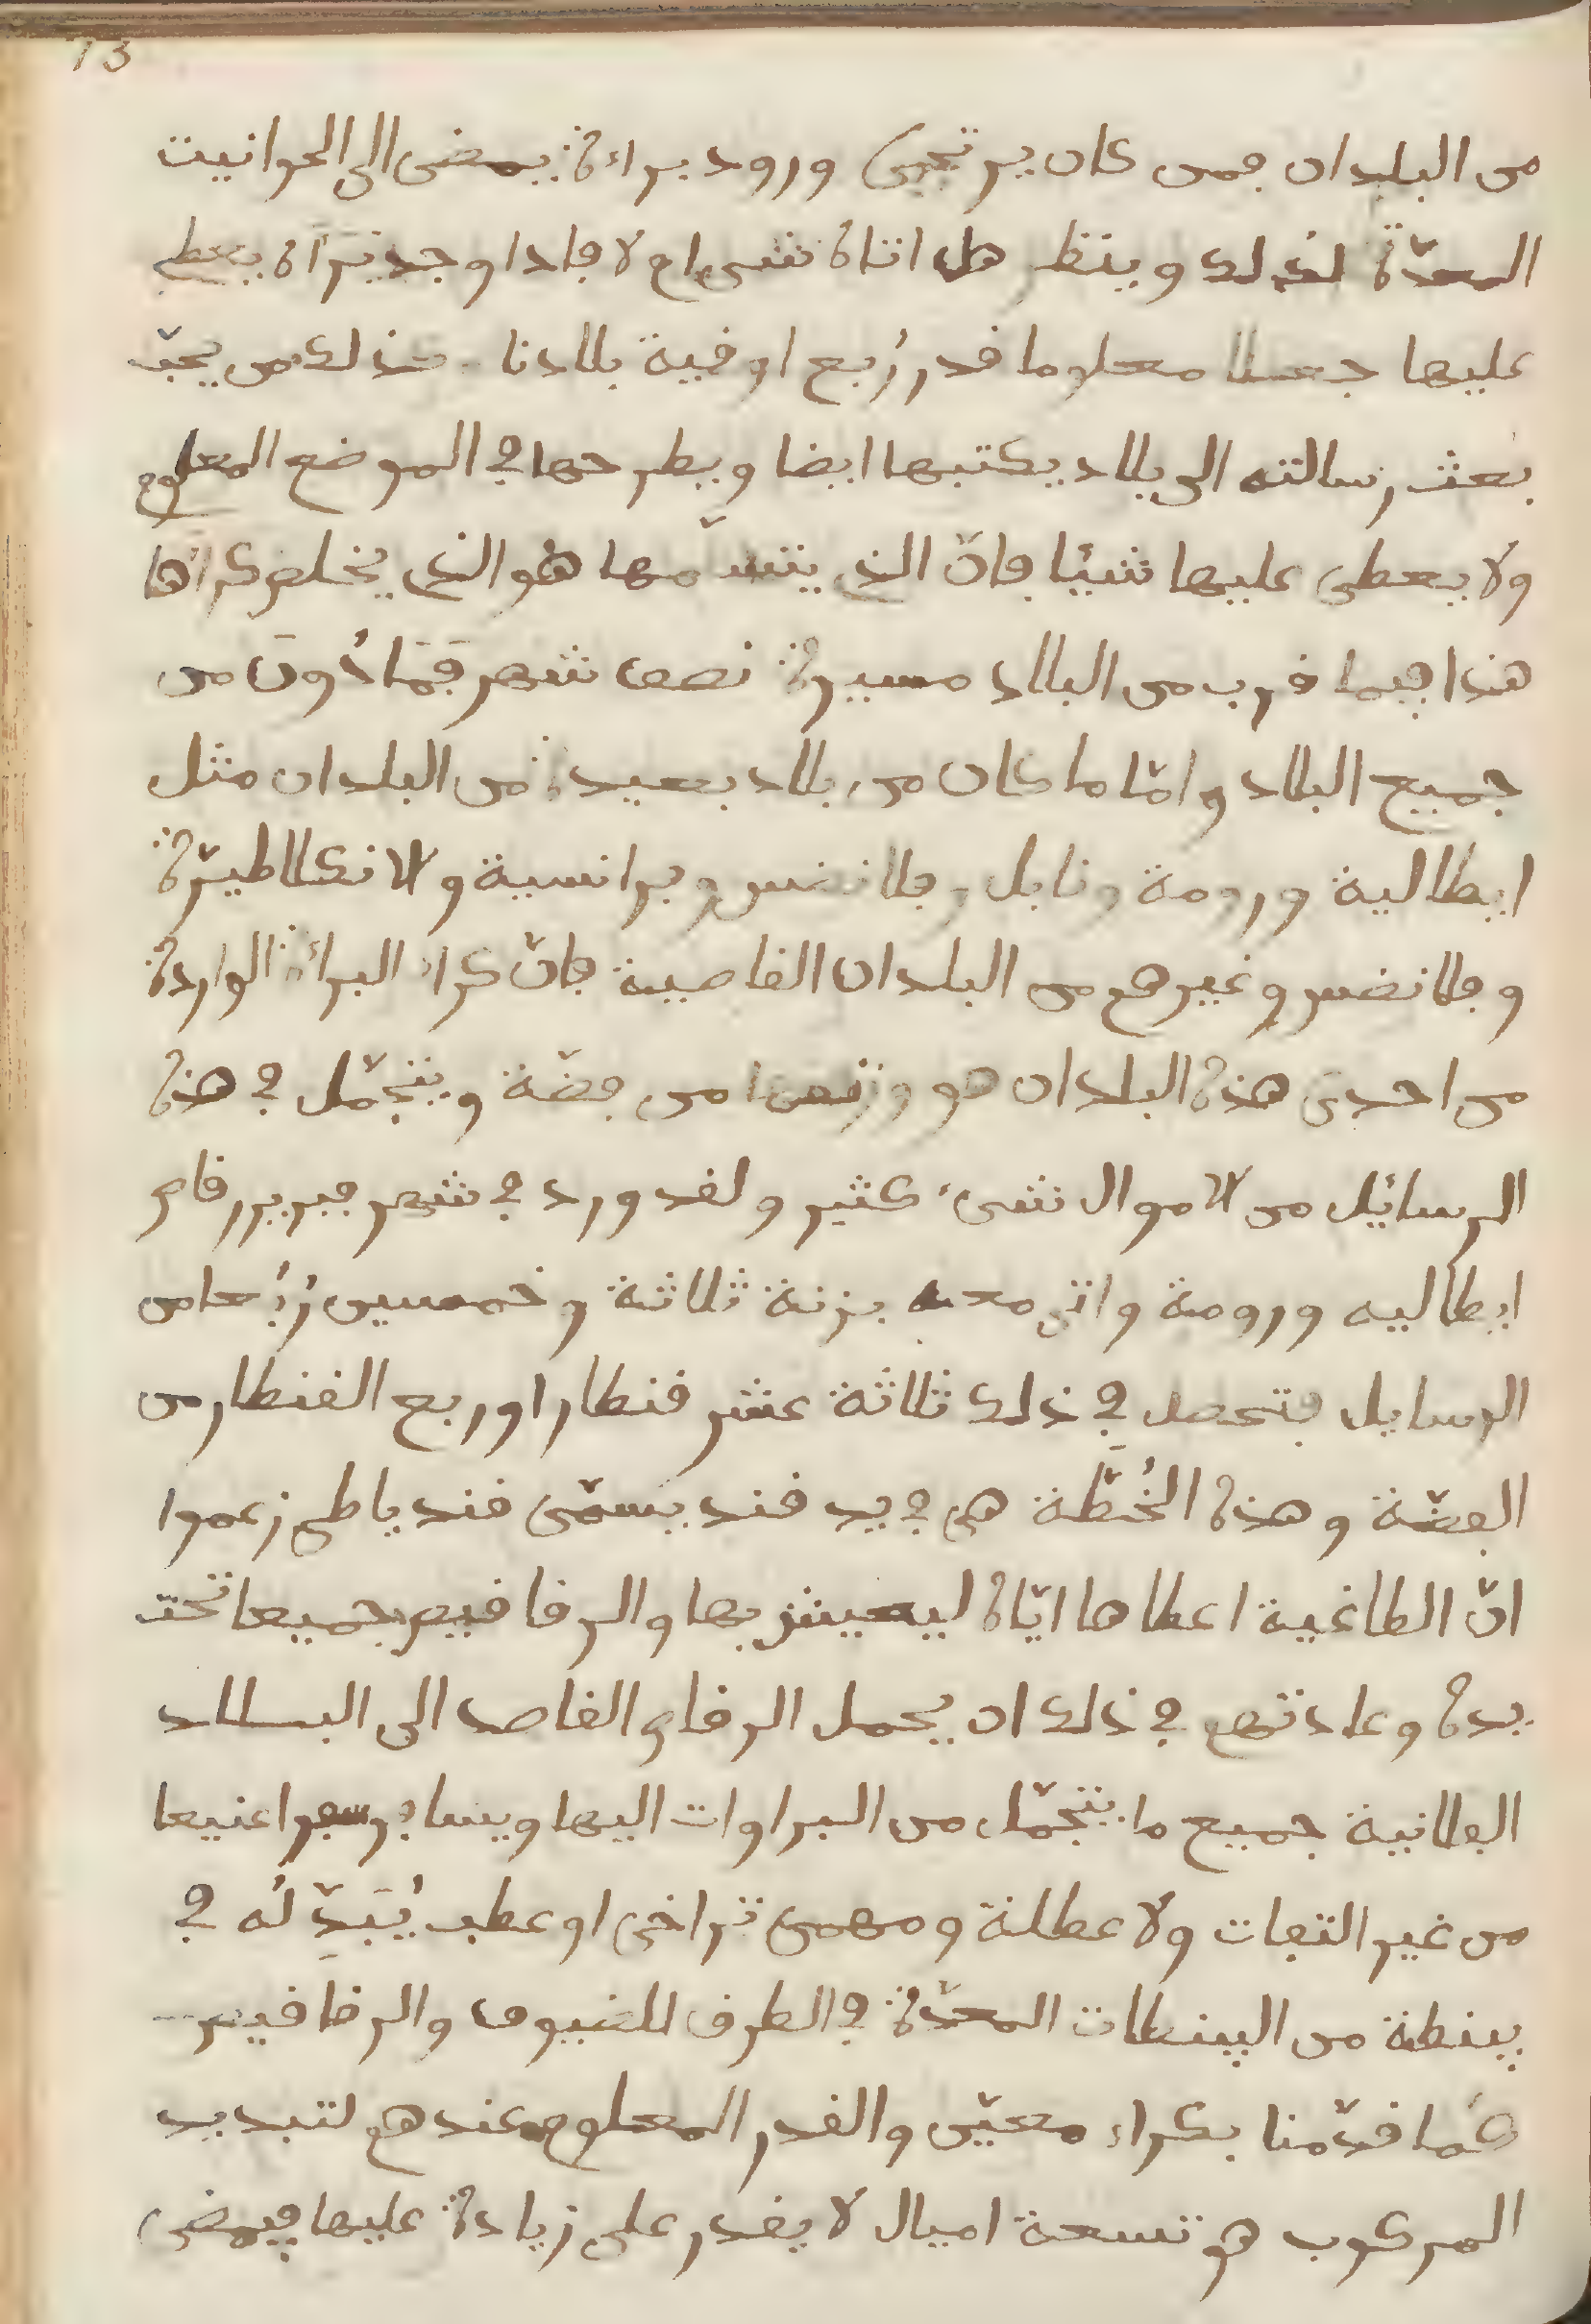 73
من البلدان فمن كان يرتجى ورود براءة يمضى الى الحوانيت
المعدّة لذلك وينظر هل اتاه شىء ام لا فاذا وجد براءة يعطى
عليها جعلا معلوما قدر رُبع اوقية بلادنا كذلك من يحبّ
بعث رسالته الى بلاد يكتبها ايضا ويطرحها في الموضع المعلوم
ولا يعطى عليها شيئا فانّ الذى يتسلّمها هو الذى يخلص كراءها
هذا فيما قرب من البلاد مسيرة نصف شهر فَمَا دُونَ من
جميع البلاد وامّا ما كان من بلاد بعيدة من البلدان مثل
ايطالية ورومة ونابل وفلانضس وبرانسية والانكلاطيرّة
وفلانضس وغيرهم من البلدان القاصية فانّ كراء البراءة الواردة
من احدى هذه البلدان هو وزنها من فضّة ويتجمّل في هذه
الرسائل من الاموال شىء كثير ولقد ورد في شهر فبرير رقاص
ايطاليه ورومة واتى معه بزنة ثلاثة وخمسين رُبُعا من
الرسايل فتحصل في ذلك ثلاثة عشر قنطارا وربع القنطار من
الفضّة وهذه الخُطَّة هى في يد قند يسمّى قند ياطى زعموا
انّ الطاغية اعطاها ايّاه ليعيش بها والرقاقيص جميعا تحت
يده وعادتهم في ذلك ان يحمل الرقاص القاصد الى البلاد
الفلانية جميع ما يتجمّل من البراوات اليها ويسافر سفرا عنيفا
من غير التفات ولا عطلة ومهمى تراخى او عطب يُبَدِّلُه في
پنطة من الپنطات المعدّة في الطرق للضيوف والرقاقيص
كما قدّمنا بكراء معيّن والقدر المعلوم عندهم لتبديد
المركوب هو تسعة اميال لا يقدر على زيادة عليها فيمضى